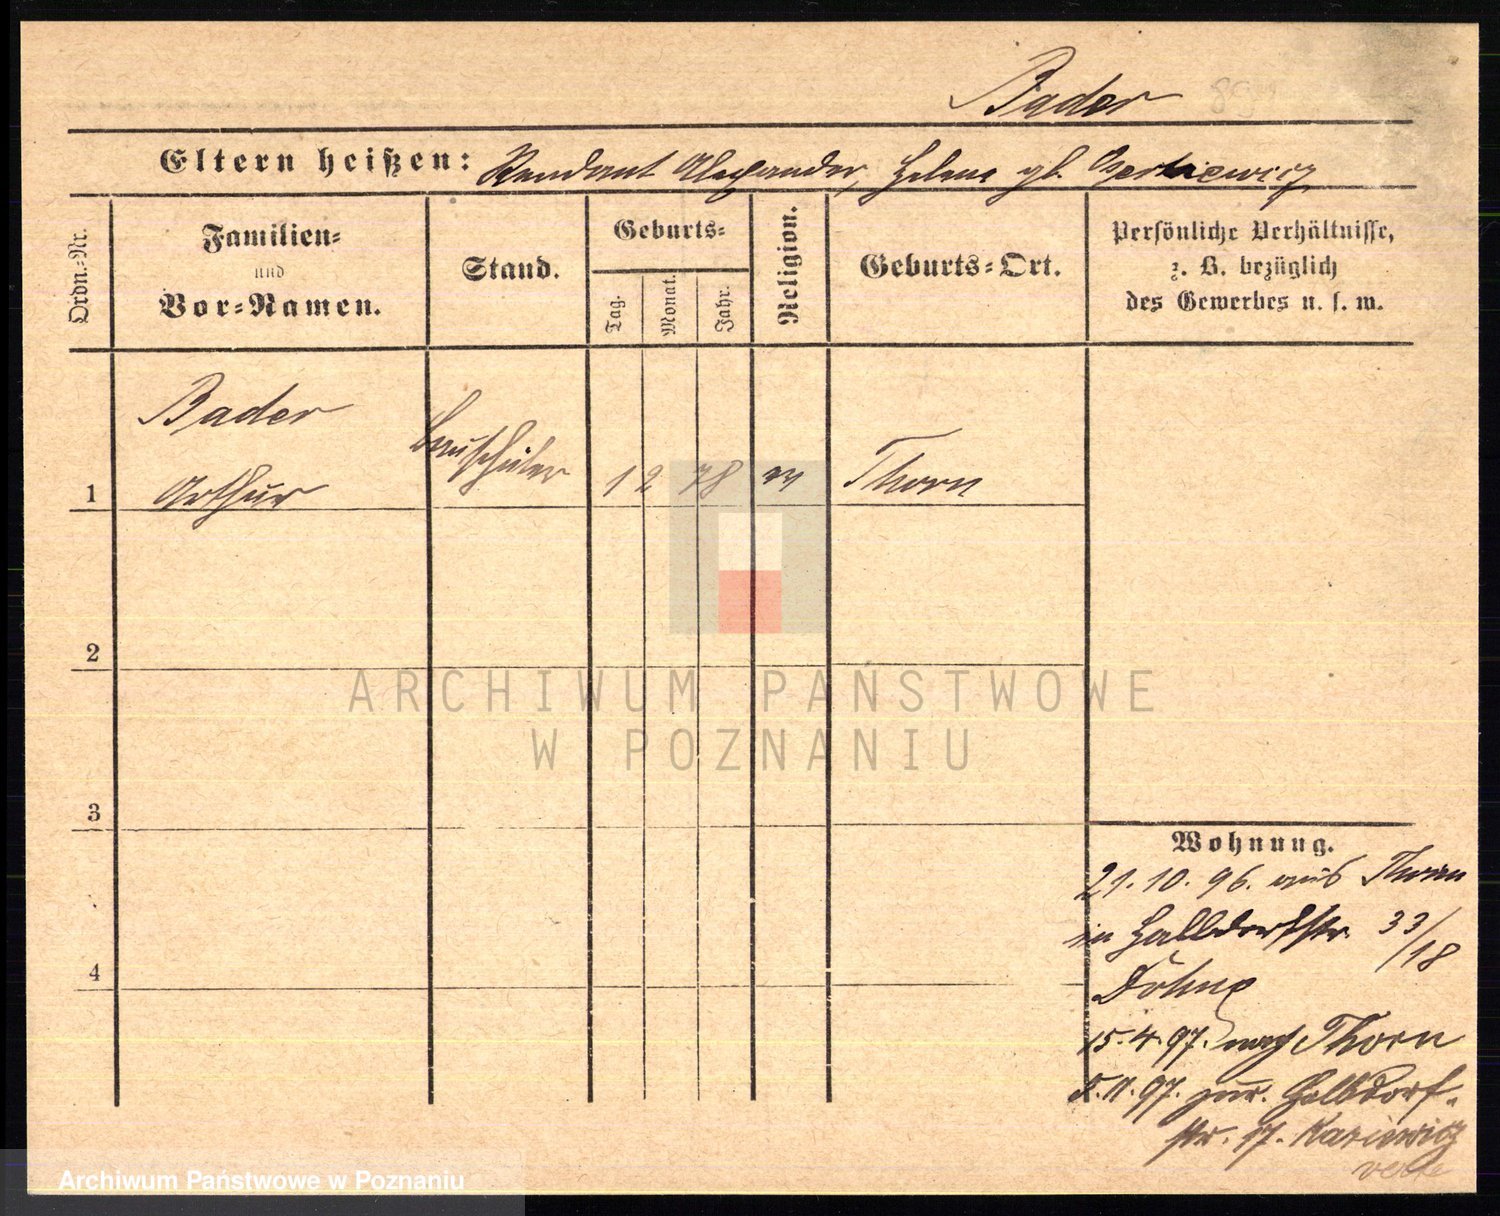 Bader
Eltern heißen: Rendant Alexander, Helene gb.
Ordn.-Nr.
Familien-
und
Vor-Namen.
Stand.
Geburts-
Tag.
Monat.
Jahr.
Religion.
Geburts-Ort.
Persönliche Verhältnisse,
z. B. bezüglich
des Gewerbes u. s. w.
Bader
1 Arthur Bauschüler 1 2 78 Thorn
2
3
4
Wohnung.
21. 10. 96. aus Thorn
in Halbdorfstr. 33/18
Döhne
15. 4. 97. nach Thorn
5. 11. 97. zur. Halbdorf-
str. 17.
verte
ARCHIWUM PAŃSTWOWE
W POZNANIU
Archiwum Państwowe w Poznaniu